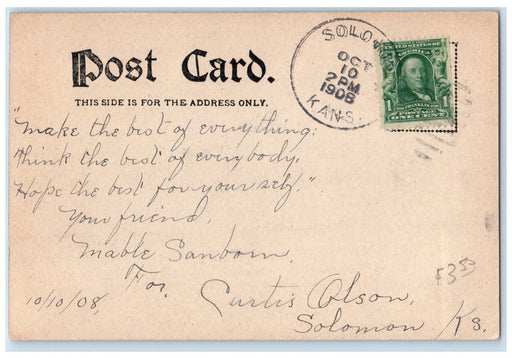 Post Card.
THIS SIDE IS FOR THE ADDRESS ONLY.
SOLOMON
OCT
10
2 PM
1908
KANS.
UNITED STATES OF AMERICA
FRANKLIN
1 POSTAGE 1
ONE CENT
"Make the best of everything:
Think the best of everybody,
Hope the best for yourself."
Your friend,
Mable Sanborn,
For,
10/10/08, Curtis Olson,
Solomon Ks.